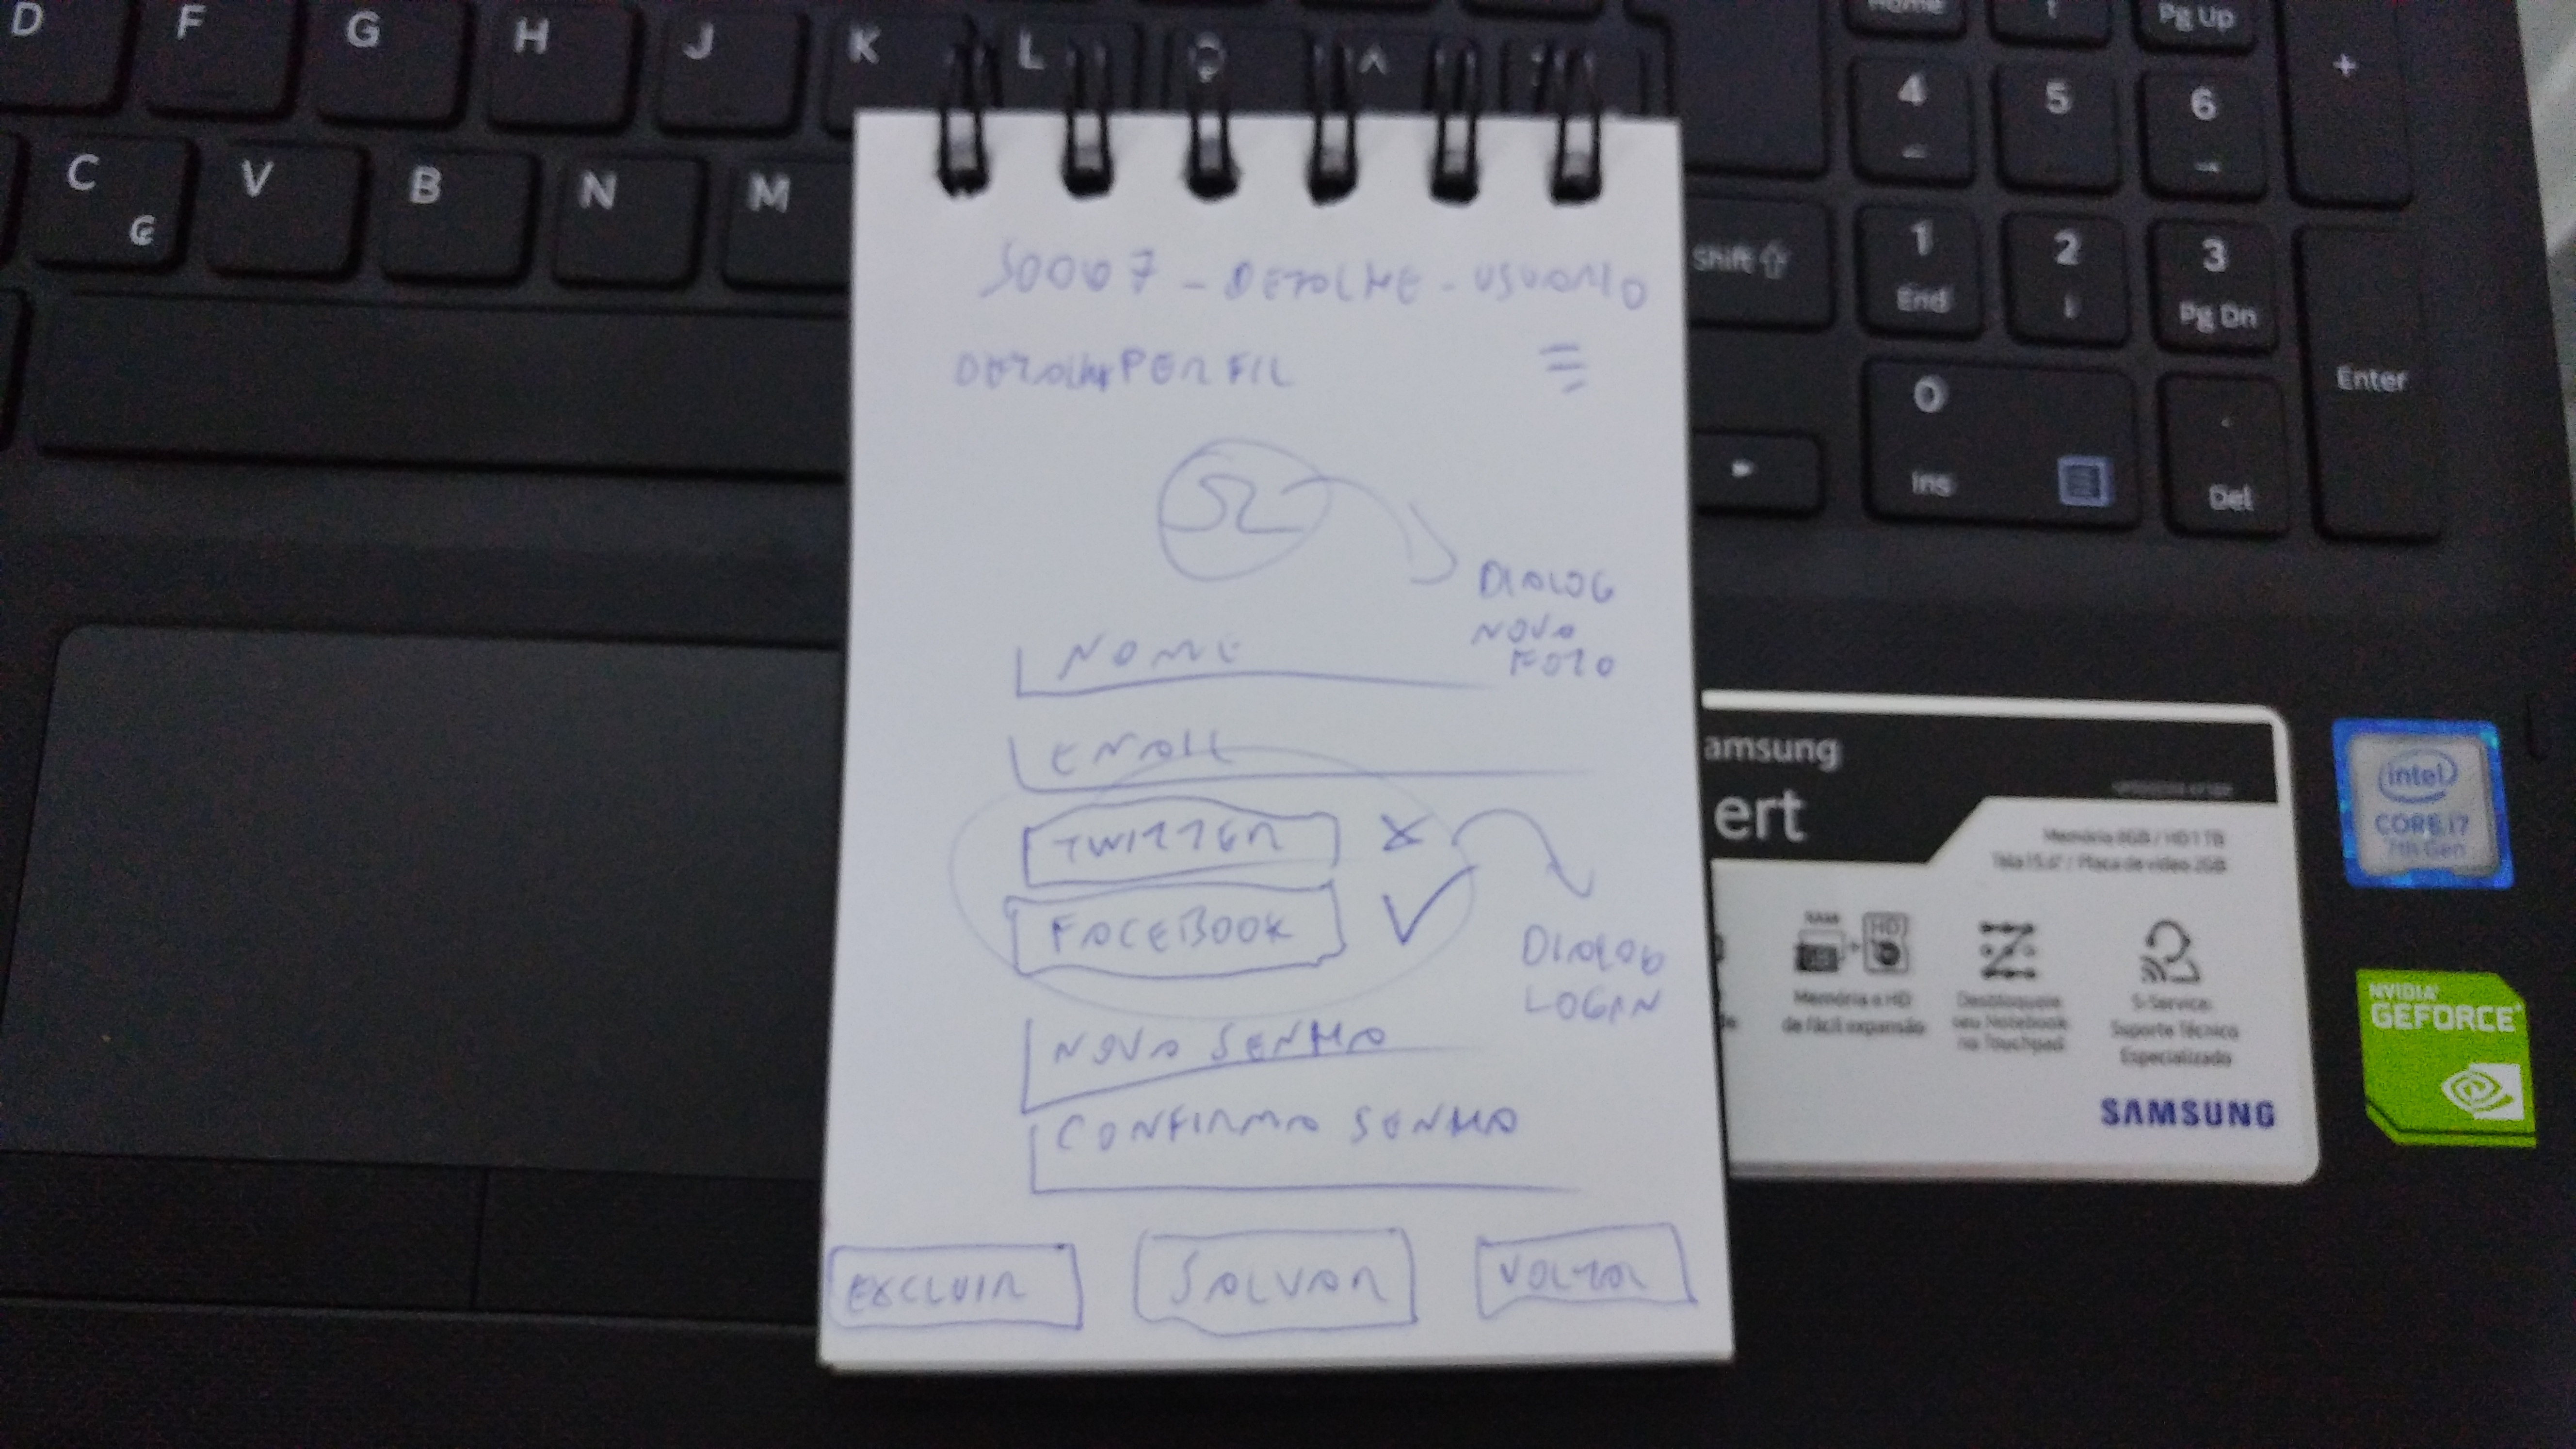 D F G H J K L Ç ^
Home
Pg Up
+
4 5 6
C ₢ V B N M
Shift
1 End 2 3 Pg Dn
Enter
0 Ins . Del
S0007 - DETALHE - USUARIO
DETALHE PERFIL
DIALOG
NOVA
FOTO
NOME
EMAIL
TWITTER X
FACEBOOK
DIALOG
LOGIN
NOVA SENHA
CONFIRMA SENHA
EXCLUIR SALVAR VOLTAR
amsung
ert
Memória 8GB / HD 1 TB
Tela 15.6" / Placa de vídeo 2GB
RAM HD
Memória e HD
de fácil expansão
Desbloqueie
seu Notebook
no Touchpad
S-Service:
Suporte Técnico
Especializado
SAMSUNG
intel
CORE i7
7th Gen
NVIDIA
GEFORCE